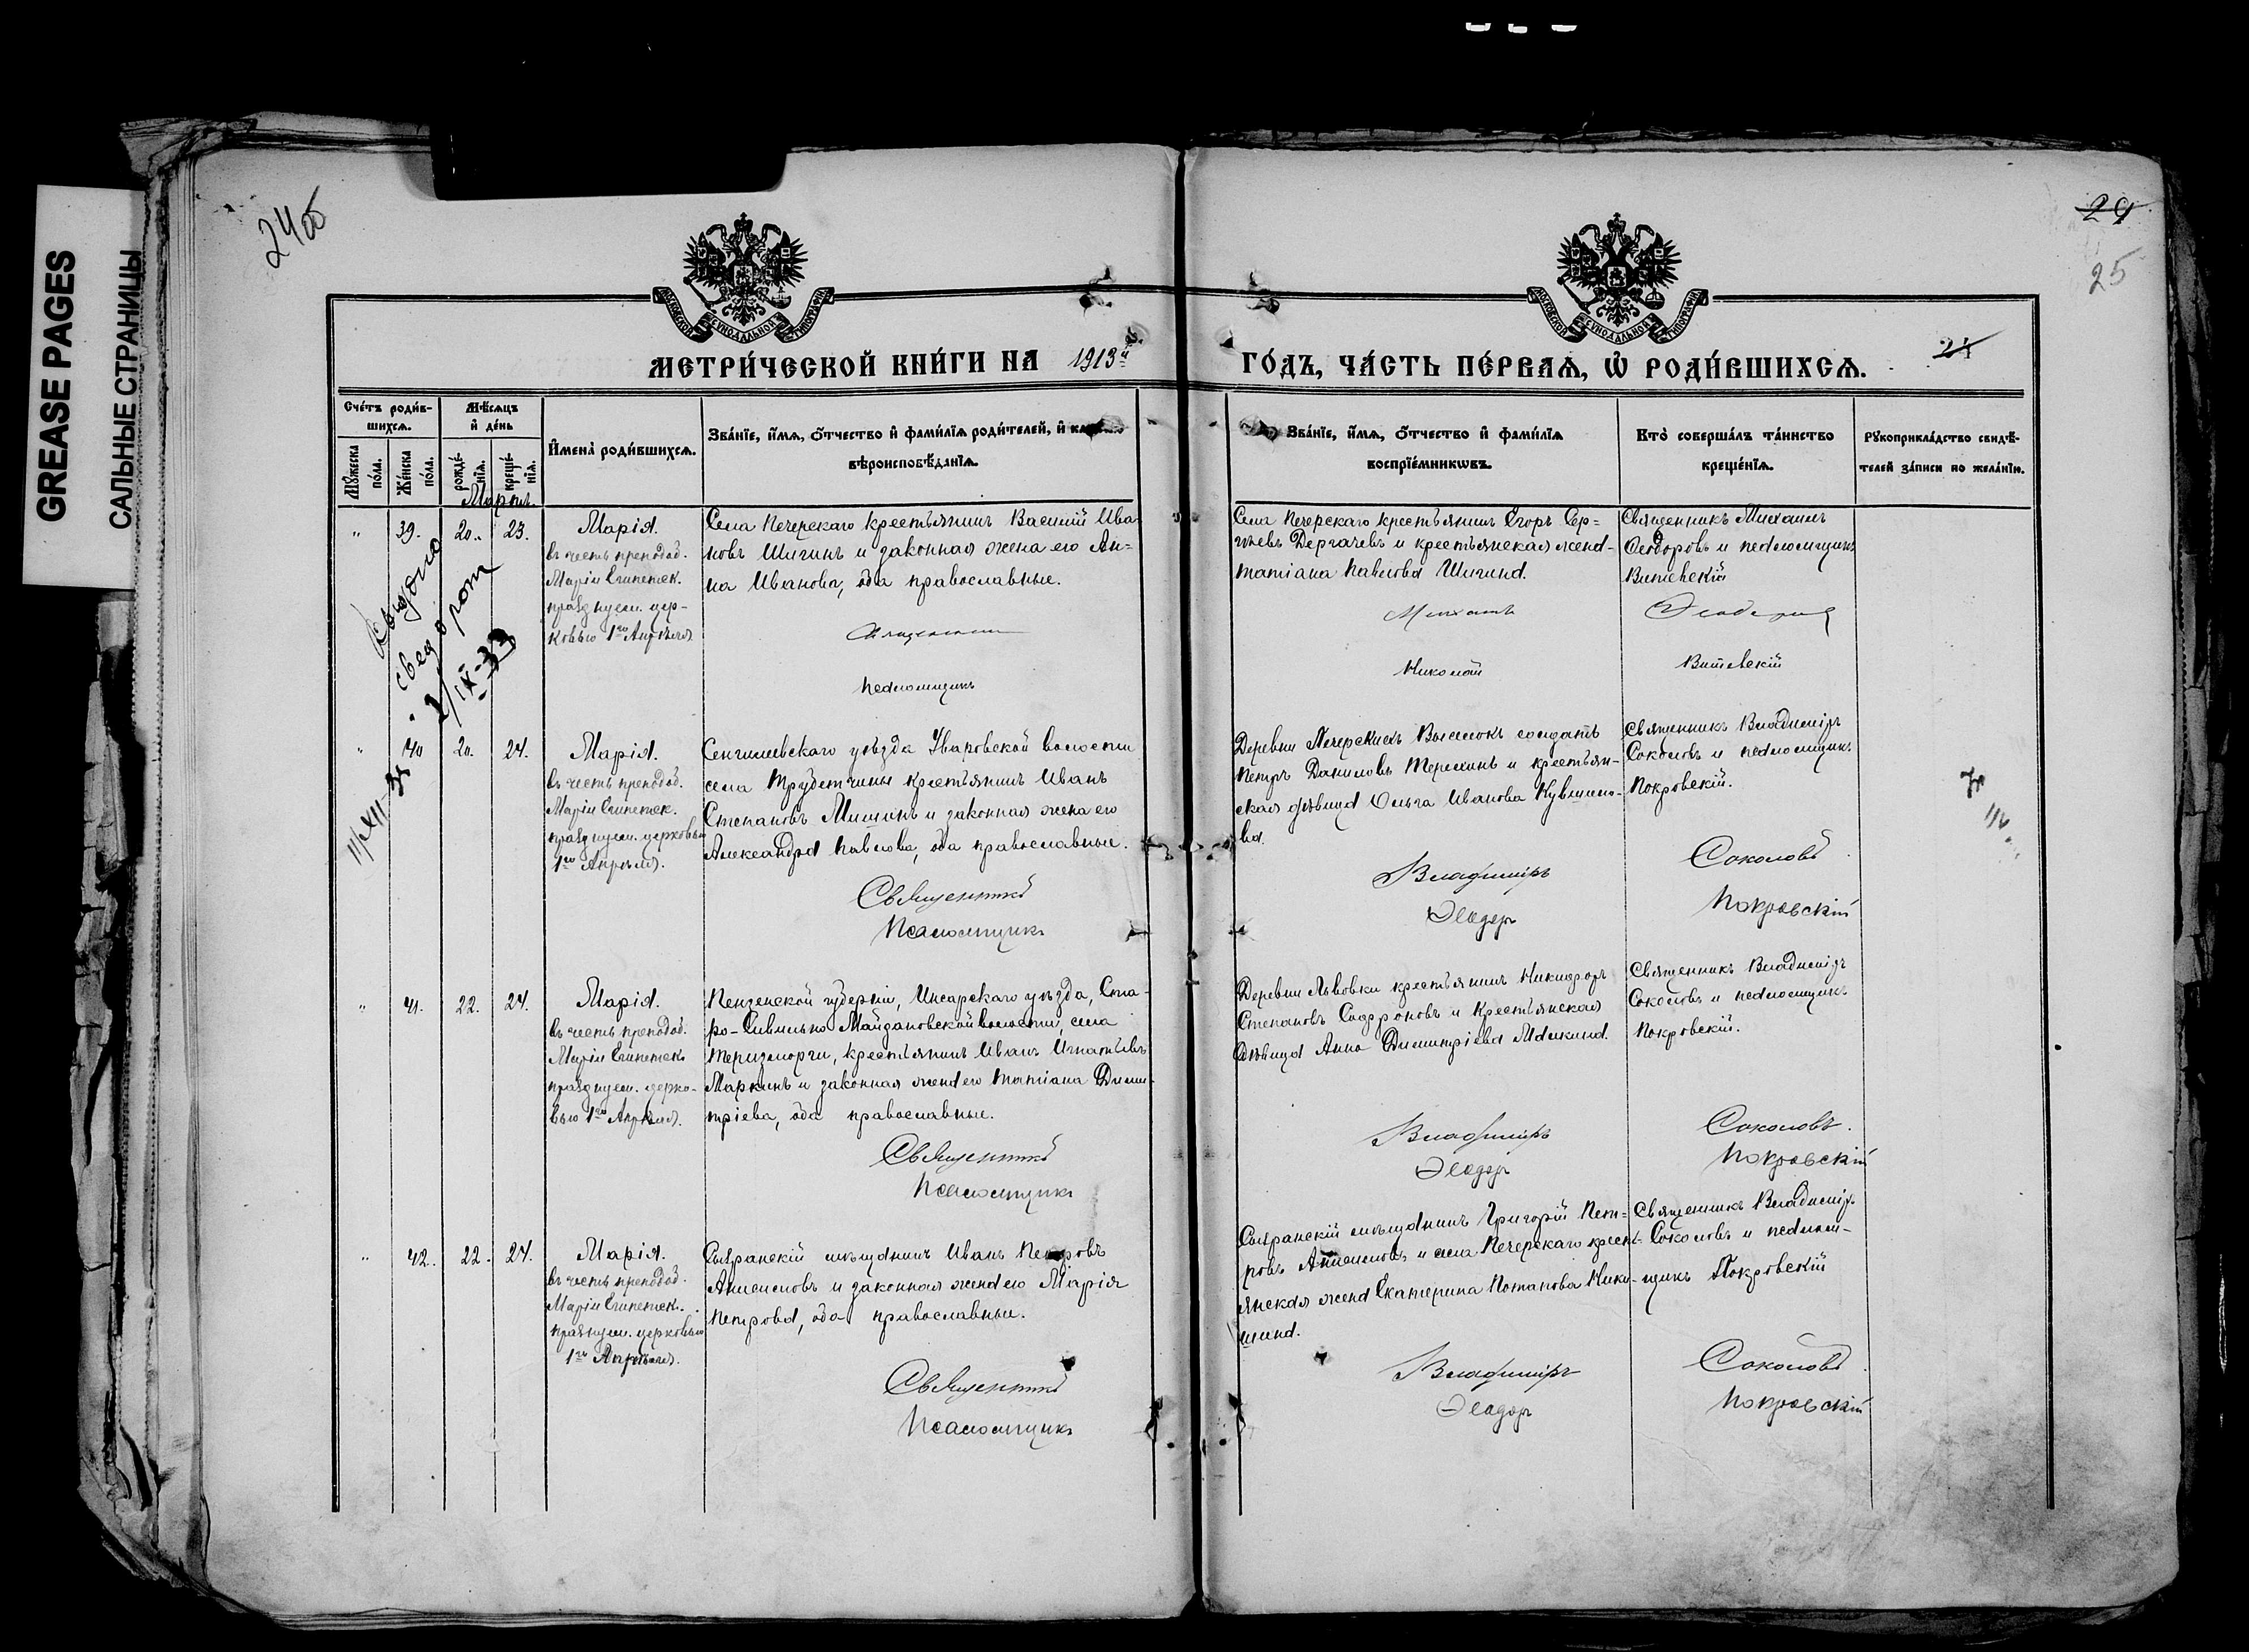 GREASE PAGES
САЛЬНЫЕ СТРАНИЦЫ
24об
29
25
МОСКОВСКОЙ СѴНОДАЛЬНОЙ ТИПОГРАФІИ
МОСКОВСКОЙ СѴНОДАЛЬНОЙ ТИПОГРАФІИ
МЕТРИ́ЧЕСКОЙ КНИ́ГИ НА 1913й
ГО́ДЪ, ЧА́СТЬ ПЕ́РВАѦ, Ѡ҆ РОДИ́ВШИХСѦ.
24
Сче́тъ роди́в-
шихсѧ.
Мѣ́сѧцъ
и҆ де́нь
Мꙋ́жеска по́ла.
Же́нска по́ла.
рожде́-
нїѧ.
креще́-
нїѧ.
И҆мена̀ роди́вшихсѧ.
Зва́нїе, и҆́мѧ, ѻ҆́тчество и҆ фами́лїѧ роди́телей, и҆
вѣроисповѣ́данїѧ.
Зва́нїе, и҆́мѧ, ѻ҆́тчество и҆ фами́лїѧ
воспрїе́мникѡвъ.
Кто̀ соверша́лъ та́инство
креще́нїѧ.
Рꙋкоприкла́дство свидѣ́-
телей за́писи по жела́нїю.
Мартъ.
" 39. 20. 23.
Марія.
въ честь преподоб.
Маріи Египетск.
празднуем. цер-
ковью 1го Апрѣля
Села Печерскаго крестьянинъ Василій Ива-
новъ Шигинъ и законная жена его Ан-
на Иванова, оба православные.
Священникъ
Псаломщикъ
Села Печерскаго крестьянинъ Егоръ Сер-
гѣевъ Дергачевъ и крестьянская жена
Татіана Павлова Шигина.
Михаилъ
Николай
Священникъ Михаилъ
Ѳеодоровъ и псаломщикъ
Витевскій
Ѳеодоровъ
Витевскій
2/IX-33
" 40 20. 24.
Марія.
въ честь преподоб.
Маріи Египетск.
празднуем. церковью
1го Апрѣля.
Сенгилеевскаго уѣзда Уваровской волости
села Трубетчины крестьянинъ Иванъ
Степановъ Мишинъ и законная жена его
Александра Павлова, оба православные.
Священникъ
Псаломщикъ
Деревни Печерскихъ Выселокъ солдатъ
Петръ Даниловъ Терехинъ и крестьян-
ская дѣвица Ольга Иванова Кувшино-
ва.
Владиміръ
Ѳеодоръ
Священникъ Владиміръ
Соколовъ и псаломщикъ
Покровскій.
Соколовъ
Покровскій
" 41. 22. 24.
Марія.
въ честь преподоб.
Маріи Египетск.
празднуем. церко-
вью 1го Апрѣля.
Пензенской губерніи, Инсарскаго уѣзда, Ста-
Майдановской волости, села
Теризморги, крестьянинъ Иванъ Игнатьевъ
Маркинъ и законная жена его Татіана Дими-
тріева, оба православные.
Священникъ
Псаломщикъ
Деревни Львовки крестьянинъ Никифоръ
Степановъ Сафроновъ и крестьянская
дѣвица Анна Димитріева
Владиміръ
Ѳеодоръ
Священникъ Владиміръ
Соколовъ и псаломщикъ
Покровскій.
Соколовъ.
Покровскій
" 42. 22. 24.
Марія.
въ честь преподоб.
Маріи Египетск.
празнуем. церковью
1го Апрѣля.
Сызранскій мѣщанинъ Иванъ Петровъ
Анисимовъ и законная жена его Марія
Петрова, оба православные.
Священникъ
Псаломщикъ
Сызранскій мѣщанинъ Григорій Пет-
ровъ Анисимовъ и села Печерскаго крест-
янская жена Екатерина Потапова Ники-
шина.
Владиміръ
Ѳеодоръ
Священникъ Владиміръ
Соколовъ и псалом-
щикъ Покровскій
Соколовъ
Покровскій